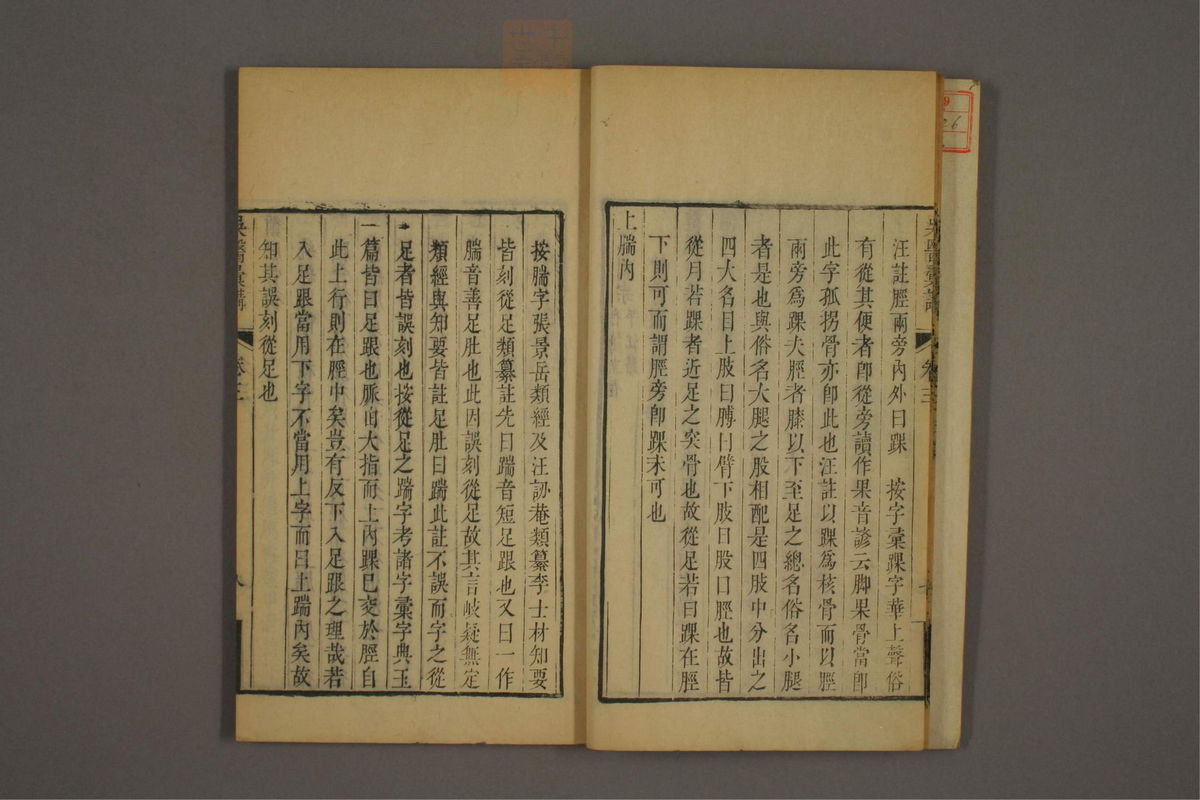 吳醫彙講
卷三
汪註脛兩旁內外曰踝　按字彙踝字華上聲俗
有從其便者卽從旁讀作果音諺云脚果骨當卽
此字孤拐骨亦卽此也汪註以踝爲核骨而以脛
兩旁爲踝夫脛者膝以下至足之總名俗名小腿
者是也與俗名大腿之股相配是四肢中分出之
四大名目上肢曰膊曰臂下肢曰股曰脛也故皆
從月若踝者近足之突骨也故從足若曰踝在脛
下則可而謂脛旁卽踝未可也
上腨內
按腨字張景岳類經及汪訒菴類纂李士材知要
皆刻從足類纂註先曰踹音短足跟也又曰一作
腨音善足肚也此因誤刻從足故其言岐疑無定
類經與知要皆註足肚曰踹此註不誤而字之從
足者皆誤刻也按從足之踹字考諸字彙字典玉
篇皆曰足跟也脈由大指而上內踝已交於脛自
此上行則在脛中矣豈有反下入足跟之理哉若
入足跟當用下字不當用上字而曰上踹內矣故
知其誤刻從足也
吳醫彙講
卷三
八